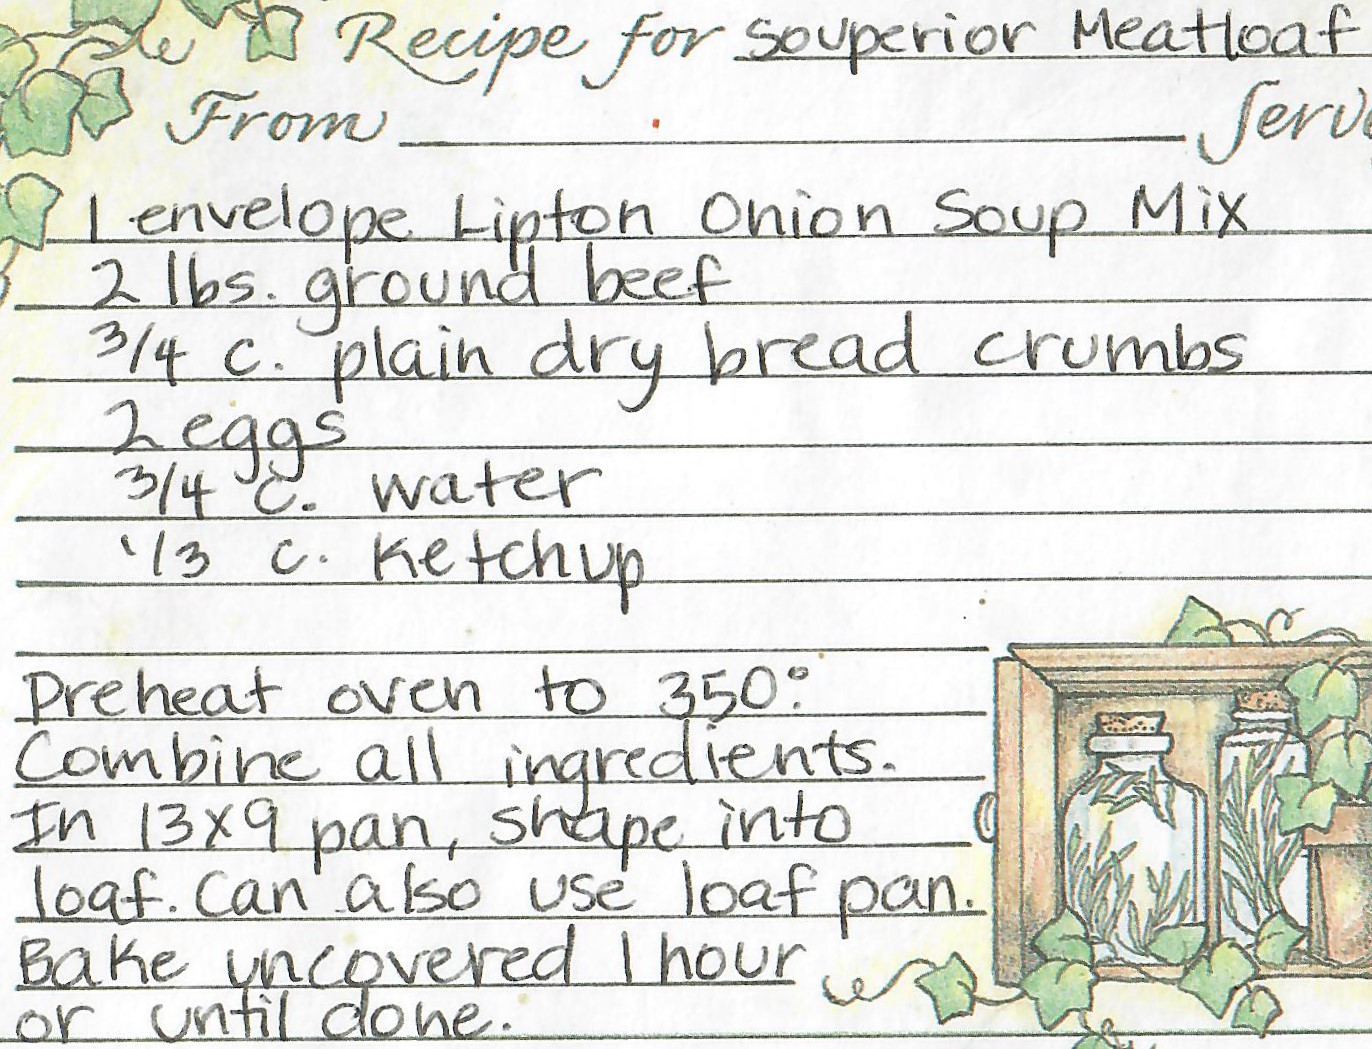 Recipe for Souperior Meatloaf
From Serv
1 envelope Lipton Onion Soup Mix
2 lbs. ground beef
3/4 c. plain dry bread crumbs
2 eggs
3/4 c. water
1/3 c. Ketchup
Preheat oven to 350°.
Combine all ingredients.
In 13x9 pan, shape into
loaf. Can also use loaf pan.
Bake uncovered 1 hour
or until done.